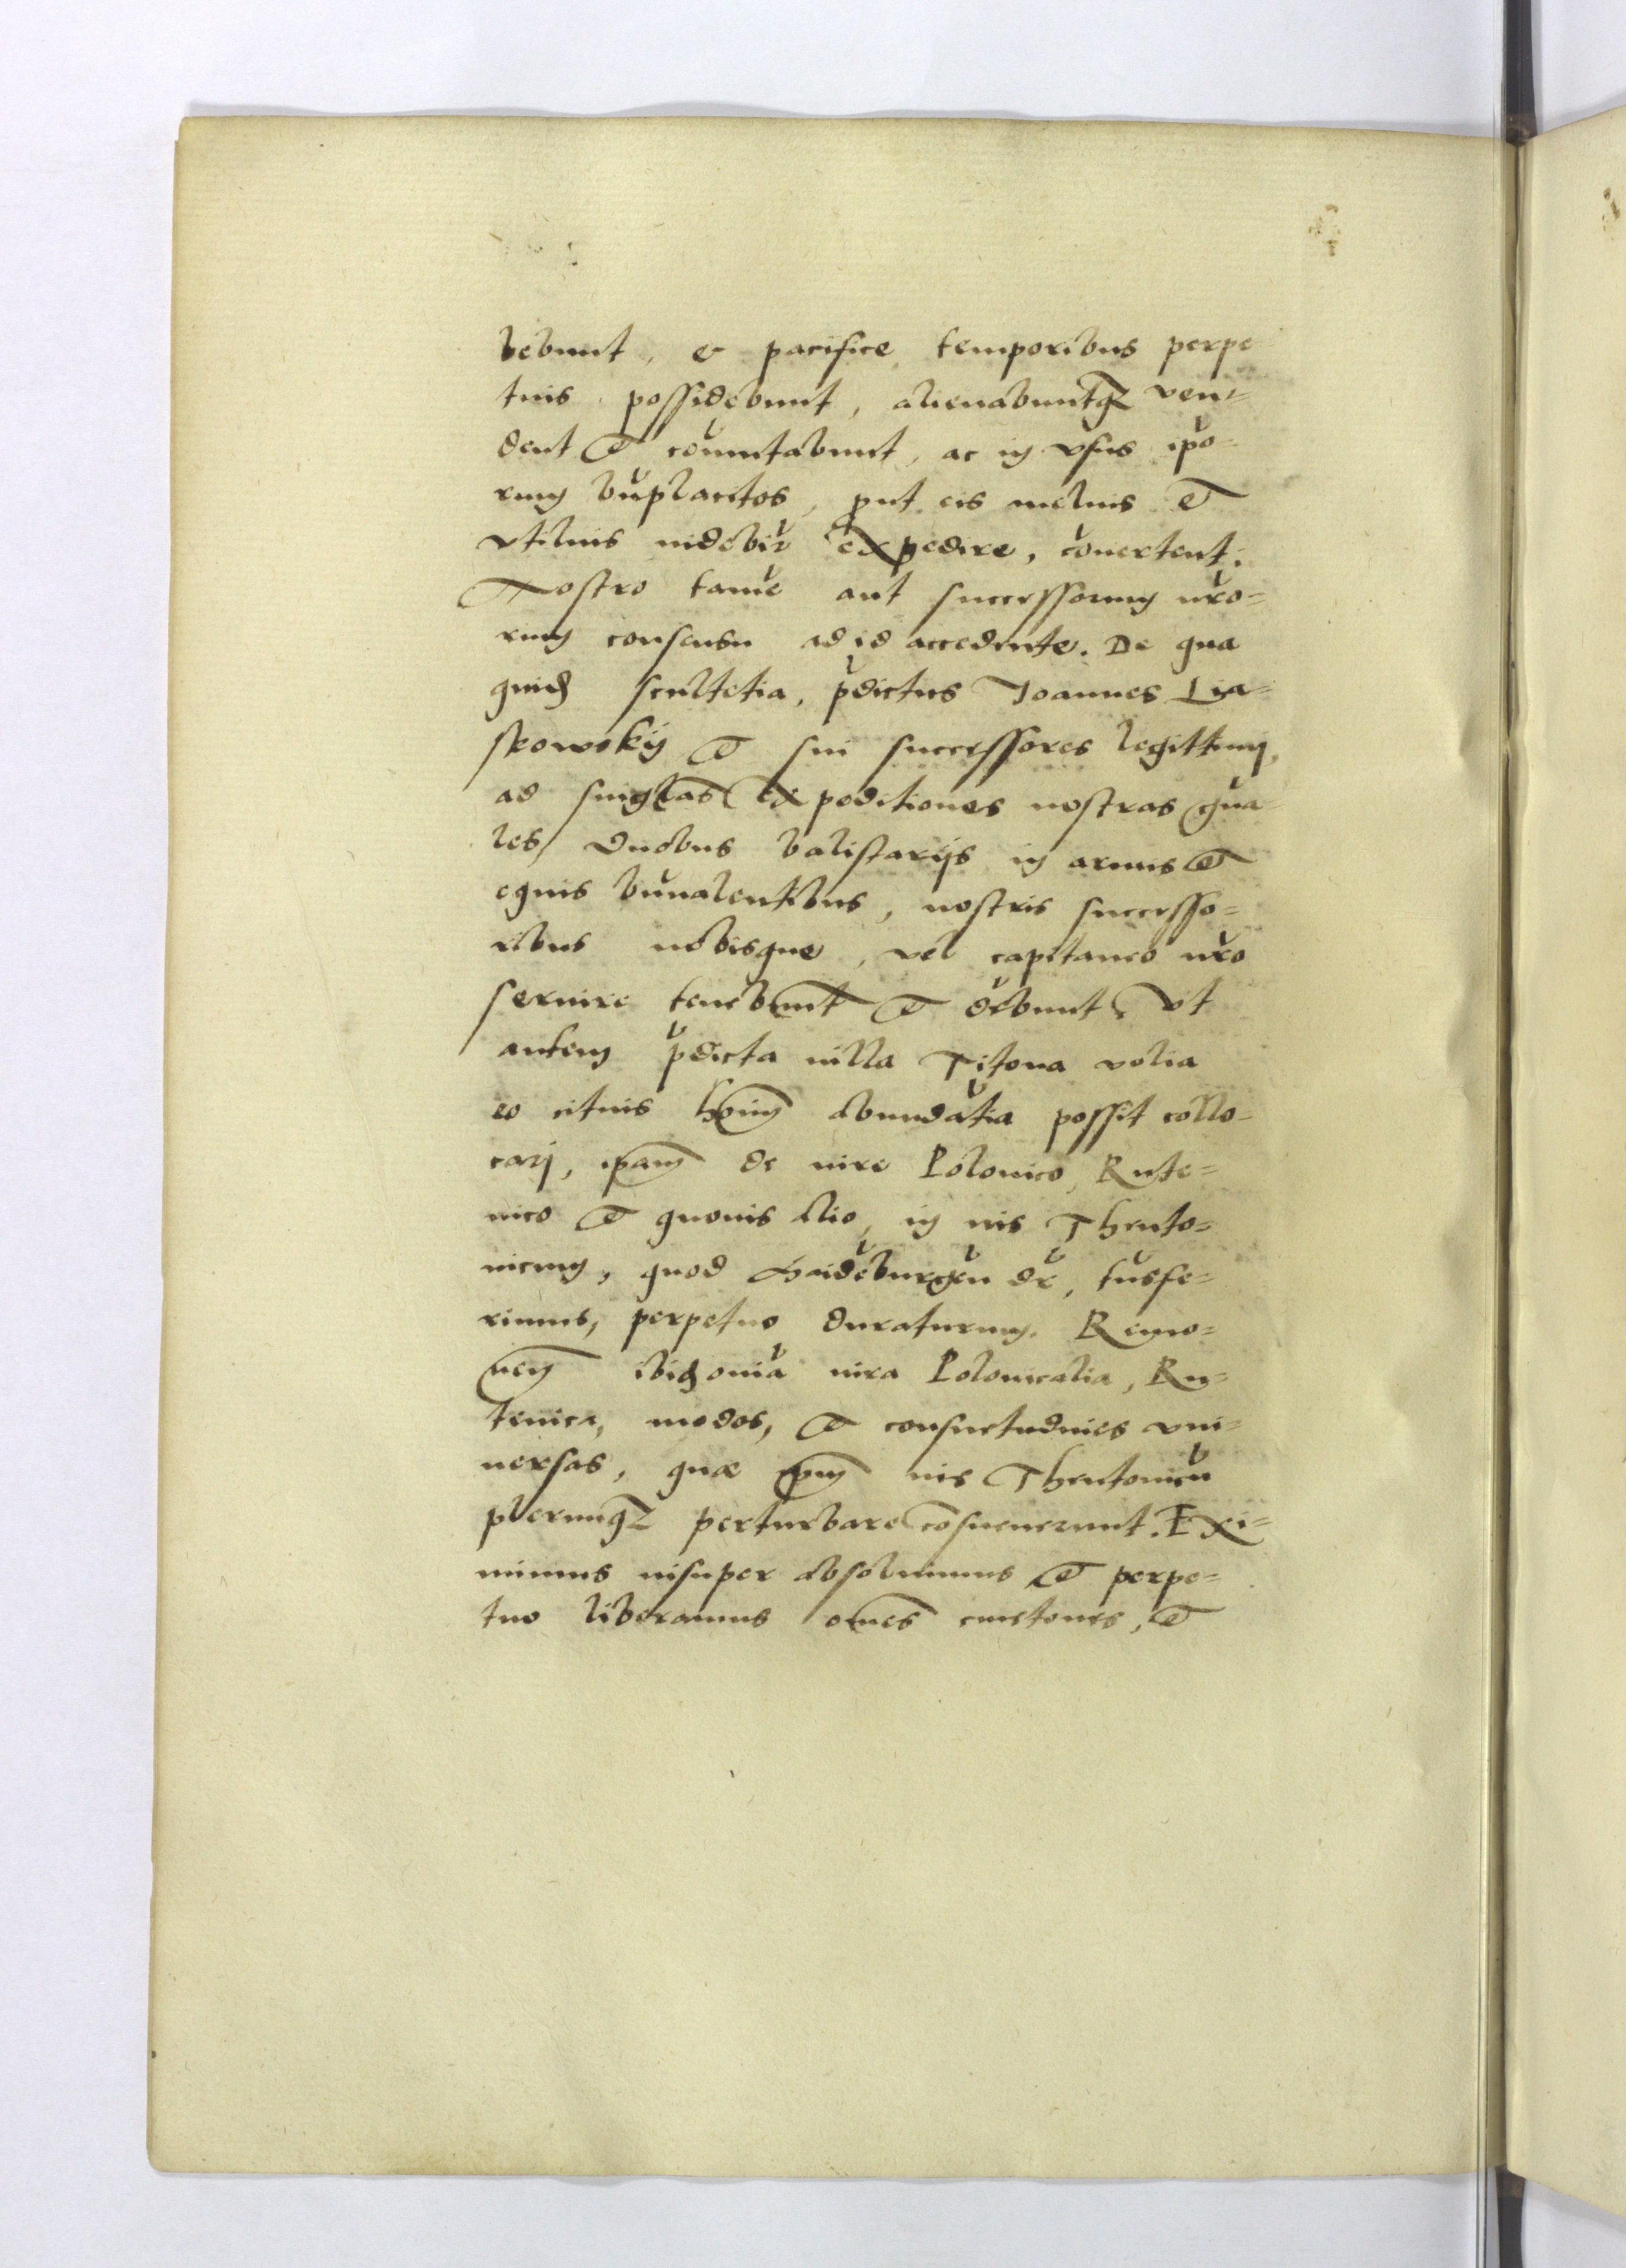 bebunt, & pacifice temporibus perpe
tuis possidebunt, alienabuntq ven=
dent et comutabunt, ac in vsus ipo=
rum bnplacitos, prout eis melius et
vtilius videbir expedire, covertent.
Nostro tame aut successorum nro=
rum consensu ad id accedente. De qua
quid scultetia, pdictus Joannes Lia=
skowskij et sui successores legittimj,
ad singlas expeditiones nostras gna=
les, duobus balistarijs in armis et
equis bnualentibus, nostris successo=
ribus nobisque, vel capitaneo nro
seruire tenebunt et debunt. Vt
autem pdicta villa Titona volia
eo citius hoim abundatia possit collo=
carj, ipam de iure Polonico, Rute=
nico et quouis alio, in ius Theuto=
nicum, quod Maideburgen dr, tnsfe=
rimus, perpetuo duraturum. Remo=
uem ibid omia iura Polonicalia, Ru=
tenica, modos, et consuetudines vni=
uersas, quæ ipm ius Theutonicu
plerumq perturbare cosueuerunt. Exi=
mimus insuper absoluimus et perpe=
tuo liberamus omes cmetones, et